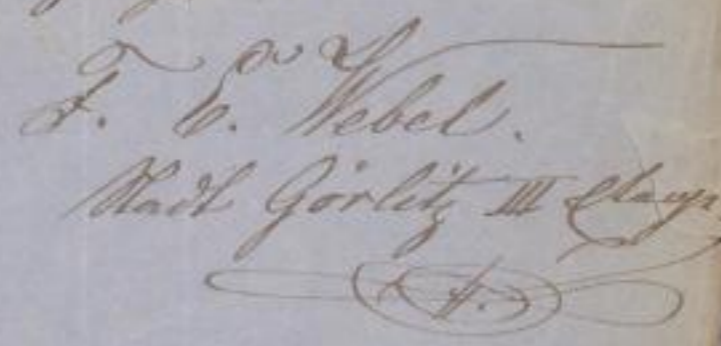 F. E. Webel.
Stadt Görlitz III Etage